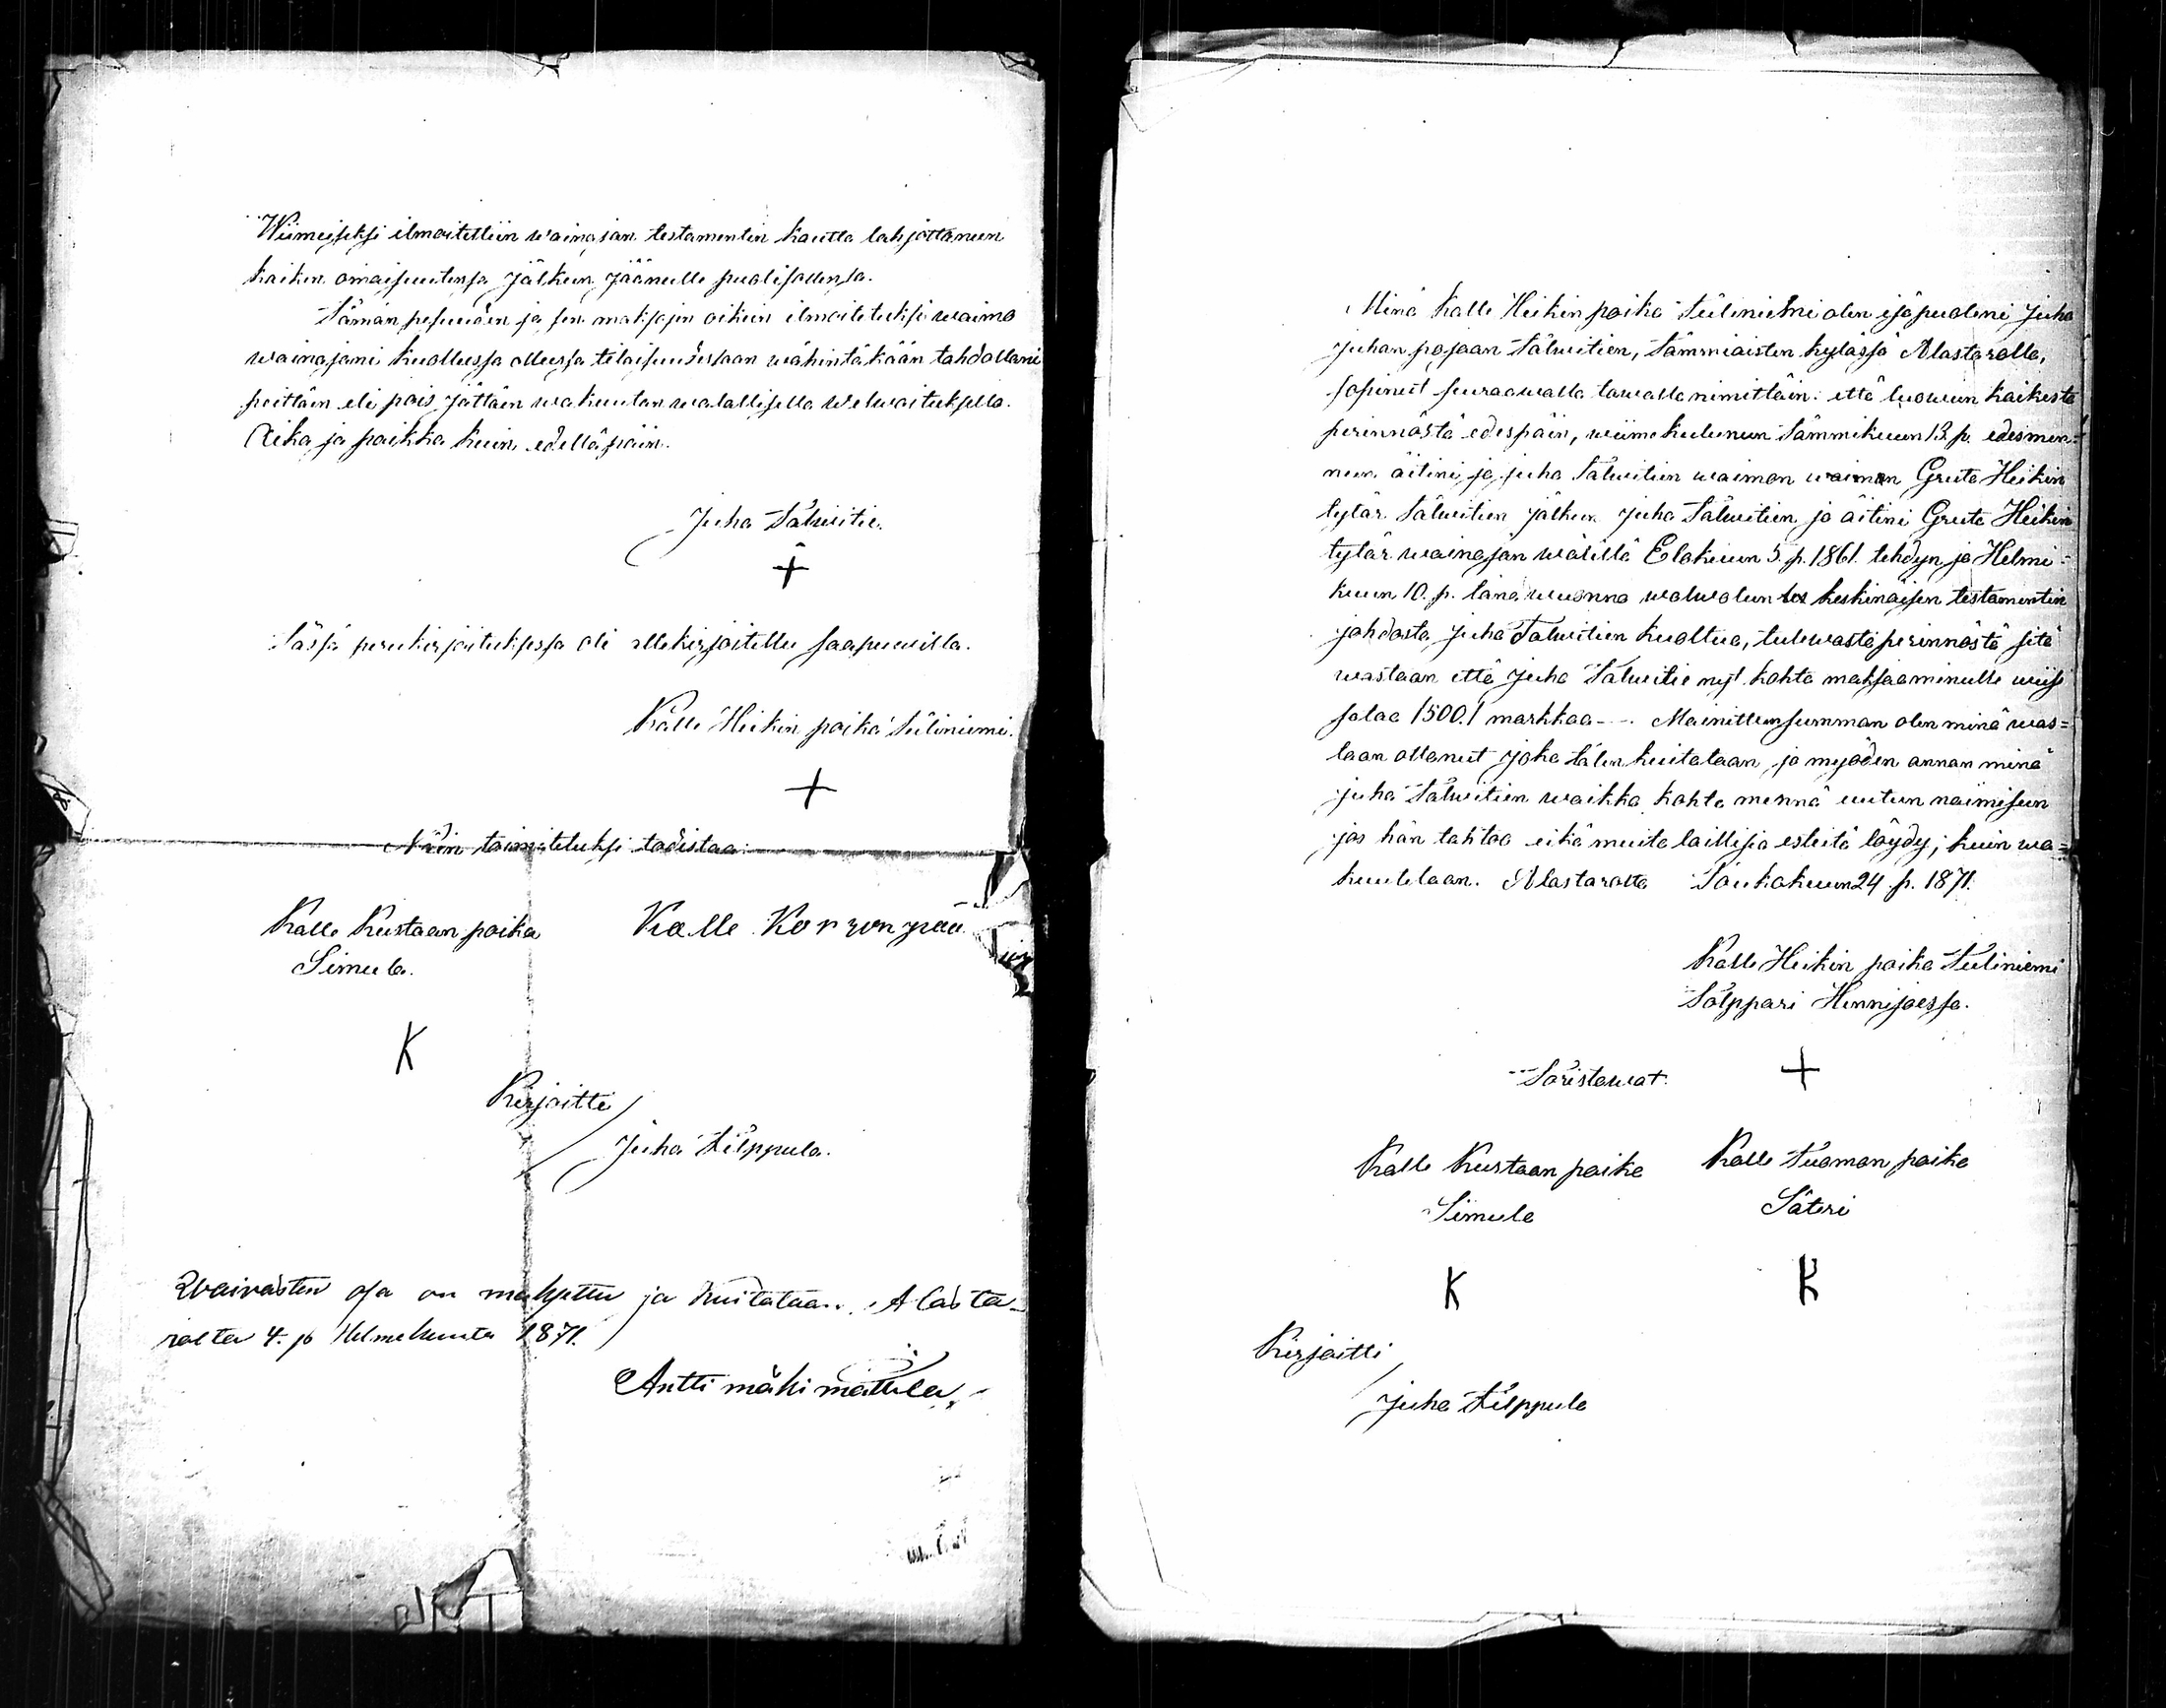 Wiimeiseksi ilmoitettiin wainajan testamentin kautta lahjottaneen
kaiken omaisuutensa jälkeen jääneelle puolisollensa.
Tämän pesuuden ja sen maksojen oikein ilmoitetuksi waimo
wainajani kuollessa ollessa tilaisuudessaan wähintäkään tahdollani
peittäin eli pois jättäin wakuutan walallisella welwoituksella.
Aika ja paikka kuin edelläpäin.
Juha Talwitie.
+
Tässä perukirjoituksessa oli allekirjoitettu saapuwilla.
Kalle Heikin poika Tuliniemi.
+
Näin toimitetuksi todistaa:
Kalle Kustaan poika Kalle Koronpää
Simula.
K
Kirjoitti
Juha Kilppula.
Waivasten osa on maksettu ja kuitataan. Alasta-
rolta 4. p Helmekuuta 1871.
Antti mäki mattila
Minä Kalle Heikin poika Tuliniemi olen isäpuoleni Juha
Juhan pojaan Talwitien, Tammiaisten kylässä Alastarolla,
sopinut seuraawalla tawalla nimittäin: että luowun kaikesta
perinnöstä edespäin, wiimekuluneen Tammikuun 13 p. edesmen-
neen äitini ja Juha Talwitien waimon waimon Greta Heikin
tytär Talwitien jälkeen Juha Talwitien ja äitini Greta Heikin
tytär wainajan wälillä Elokuun 5 p. 1861. tehdyn ja Helmi-
kuun 10. p. tänä wuonna walwotun keskinäisen testamentin
johdosta Juha Talwitien kuoltua, tulewasta perinnöstä sitä
wastaan että Juha Talwitie nyt kohta maksaa minulle wiisi
sataa /500./ markkaa - - . Mainittun summan olen minä was-
taan ottanut joka täten kuitataan, ja myöden annan minä
Juha Talwitien waikka kohta mennä uuteen naimiseen
jos hän tahtoo eikä muita laillisia esteitä löydy; kuin wa-
kuutetaan. Alastarolta Toukokuun 24 p. 1871.
Kalle Heikin poika Tuliniemi
Tolppari Hennijoessa.
Todistawat. +
Kalle Kustaan poika Kalle Tuoman poika
Simula Säteri
K K
Kirjoitti
Juha Kilppula